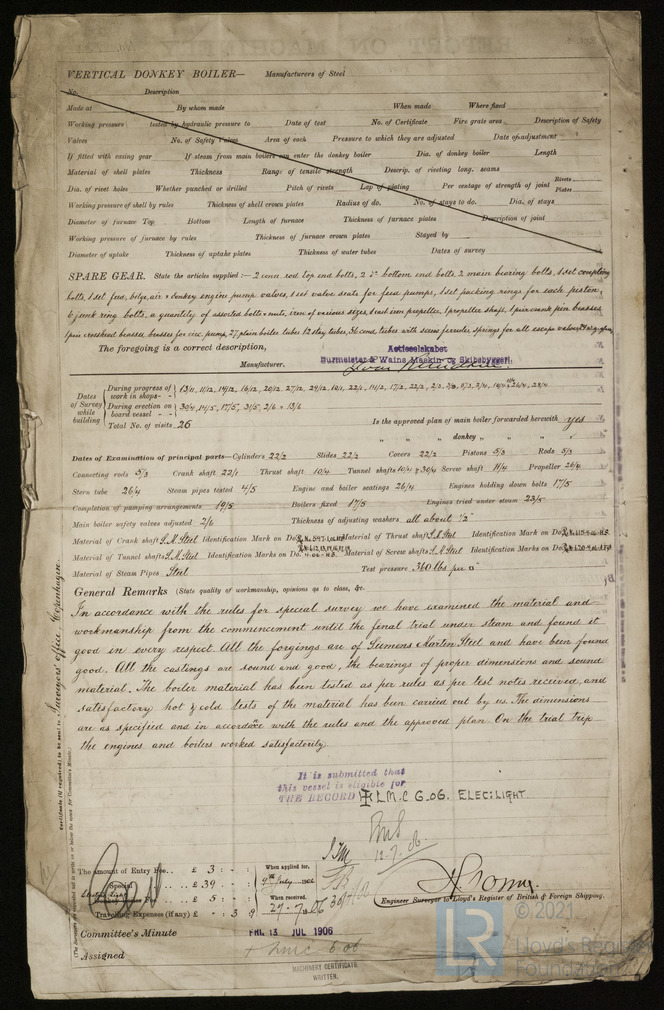 VERTICAL DONKEY BOILER— Manufacturers of Steel
No. Description
Made at By whom made When made Where fixed
Working pressure tested by hydraulic pressure to Date of test No. of Certificate Fire grate area Description of Safety
Valves No. of Safety Valves Area of each Pressure to which they are adjusted Date of adjustment
If fitted with easing gear If steam from main boilers can enter the donkey boiler Dia. of donkey boiler Length
Material of shell plates Thickness Range of tensile strength Descrip. of riveting long. seams
Dia. of rivet holes Whether punched or drilled Pitch of rivets Lap of plating Per centage of strength of joint Rivets Plates
Working pressure of shell by rules Thickness of shell crown plates Radius of do. No. of stays to do. Dia. of stays
Diameter of furnace Top Bottom Length of furnace Thickness of furnace plates Description of joint
Working pressure of furnace by rules Thickness of furnace crown plates Stayed by
Diameter of uptake Thickness of uptake plates Thickness of water tubes Dates of survey
SPARE GEAR. State the articles supplied:— 2 conn rod top end bolts, 2 do bottom end bolts, 2 main bearing bolts, 1 set coupling
bolts, 1 set feed, bilge, air & donkey engine pump valves, 1 set valve seats for feed pumps, 1 set packing rings for each piston,
6 junk ring bolts, a quantity of assorted bolts & nuts, iron of various sizes, 1 cast iron propeller, 1 propeller shaft, 1 pair crank pin brasses
1 pair crosshead brasses, brasses for circ. pump, 27 plain boiler tubes 12 stay tubes, 36 cond. tubes with screw ferrules, springs for all escape valves
The foregoing is a correct description,
Actieselskabet
Burmeister & Wains Maskin- og Skibsbyggeri
Manufacturer.
Dates of Survey while building
During progress of work in shops - -
During erection on board vessel - - 30/4, 14/5, 17/5, 31/5, 2/6 & 13/6
Total No. of visits 26 Is the approved plan of main boiler forwarded herewith yes
" " " donkey " " "
Dates of Examination of principal parts—Cylinders 22/2 Slides 22/2 Covers 22/2 Pistons 5/3 Rods 5/3
Connecting rods 5/3 Crank shaft 22/1 Thrust shaft 10/4 Tunnel shafts 10/4 & 30/4 Screw shaft 11/4 Propeller 26/4
Stern tube 26/4 Steam pipes tested 4/5 Engine and boiler seatings 26/4 Engines holding down bolts 17/5
Completion of pumping arrangements 19/5 Boilers fixed 17/5 Engines tried under steam 23/5
Main boiler safety valves adjusted 2/6 Thickness of adjusting washers all about 1/2"
Material of Crank shaft S.M. Steel Identification Mark on Do. Material of Thrust shaft S.M. Steel Identification Mark on Do.
Material of Tunnel shafts S.M. Steel Identification Marks on Do. Material of Screw shafts S.M. Steel Identification Marks on Do.
Material of Steam Pipes Steel Test pressure 360 lbs per □"
General Remarks (State quality of workmanship, opinions as to class, &c.
In accordance with the rules for special survey we have examined the material and
workmanship from the commencement until the final trial under steam and found it
good in every respect. All the forgings are of Siemens Martin Steel and have been found
good. All the castings are sound and good, the bearings of proper dimensions and sound
material. The boiler material has been tested as per rules as per test notes received, and
satisfactory hot & cold tests of the material has been carried out by us. The dimensions
are as specified and in accordance with the rules and the approved plan. On the trial trip
the engines and boilers worked satisfactorily.
It is submitted that
this vessel is eligible for
THE RECORD L.M.C 6.06. ELEC: LIGHT
Certificate (if required) to be sent to Surveyors' office, Copenhagen.
(The Surveyors are requested not to write on or below the space for Committee's Minute.)
The amount of Entry Fee .. £ 3 : - :
Special .. .. £ 39 : - :
£ 5 : - :
Travelling Expenses (if any) £ - : 3 : 9
When applied for,
9th July 1906
When received,
27-7-06
12-7-06
Engineer Surveyor to Lloyd's Register of British & Foreign Shipping.
Committee's Minute FRI. 13 JUL 1906
Assigned + LMC 6.06
MACHINERY CERTIFICATE
WRITTEN.
LR
© 2021
Lloyd's Register
Foundation